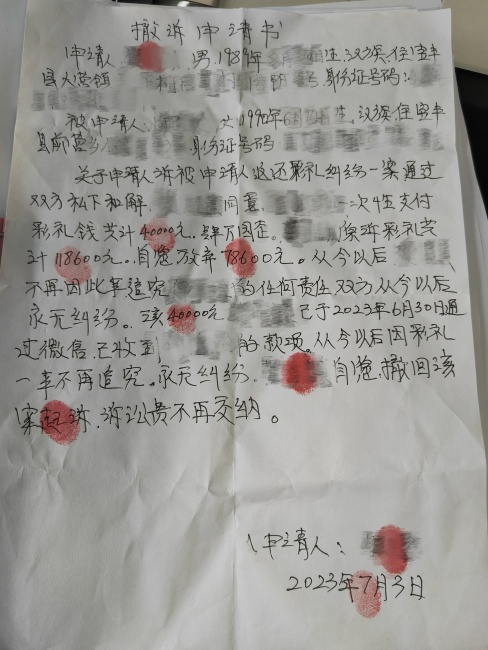 撤诉申请书
申请人 男，1989年 生，汉族，住宝丰
县大营镇 身份证号码：
被申请人 女 1990年6 生，汉族住宝丰
县 营 身份证号码
关于申请人诉被申请人返还彩礼纠纷一案通过
双方私下和解， 同意， 一次性支付
彩礼钱共计40000元，肆万圆整。 原诉彩礼共
计118600元，自愿放弃78600元。从今以后
不再因此事追究 的任何责任双方从今以后
永无纠纷。该40000元 已于2023年6月30日通
过微信，已收到 的款项。从今以后因彩礼
一事不再追究。永无纠纷， 自愿，撤回该
案起诉，诉讼费不再交纳。
申请人：
2023年7月3日